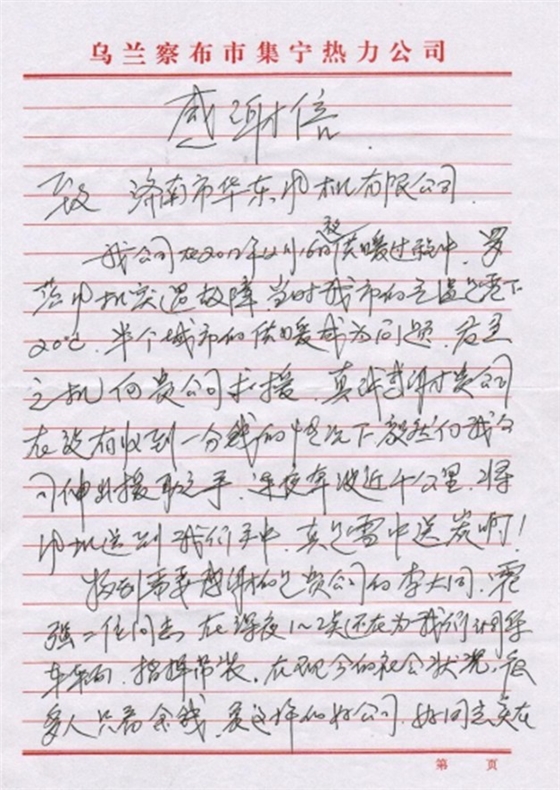 乌兰察布市集宁热力公司
感谢信
致 济南市华东风机有限公司
我公司在2012年12月16日夜供暖过程中,罗
茨风机突遇故障,当时我市的气温是零下
20℃,半个城市的供暖成为问题,在危
之机向贵公司求援,真诚感谢贵公司
在没有收到一分钱的情况下毅然向我公
司伸出援助之手,连夜奔波近千公里,将
风机送到我们手中,真是雪中送炭啊!
特别需要感谢的是贵公司的李大同、
强二位同志,在深夜1~2点还在为我们调
车辆,指挥吊装,在现今的社会状况,很
多人只看金钱,像这样的好公司,好同志实在
第 页